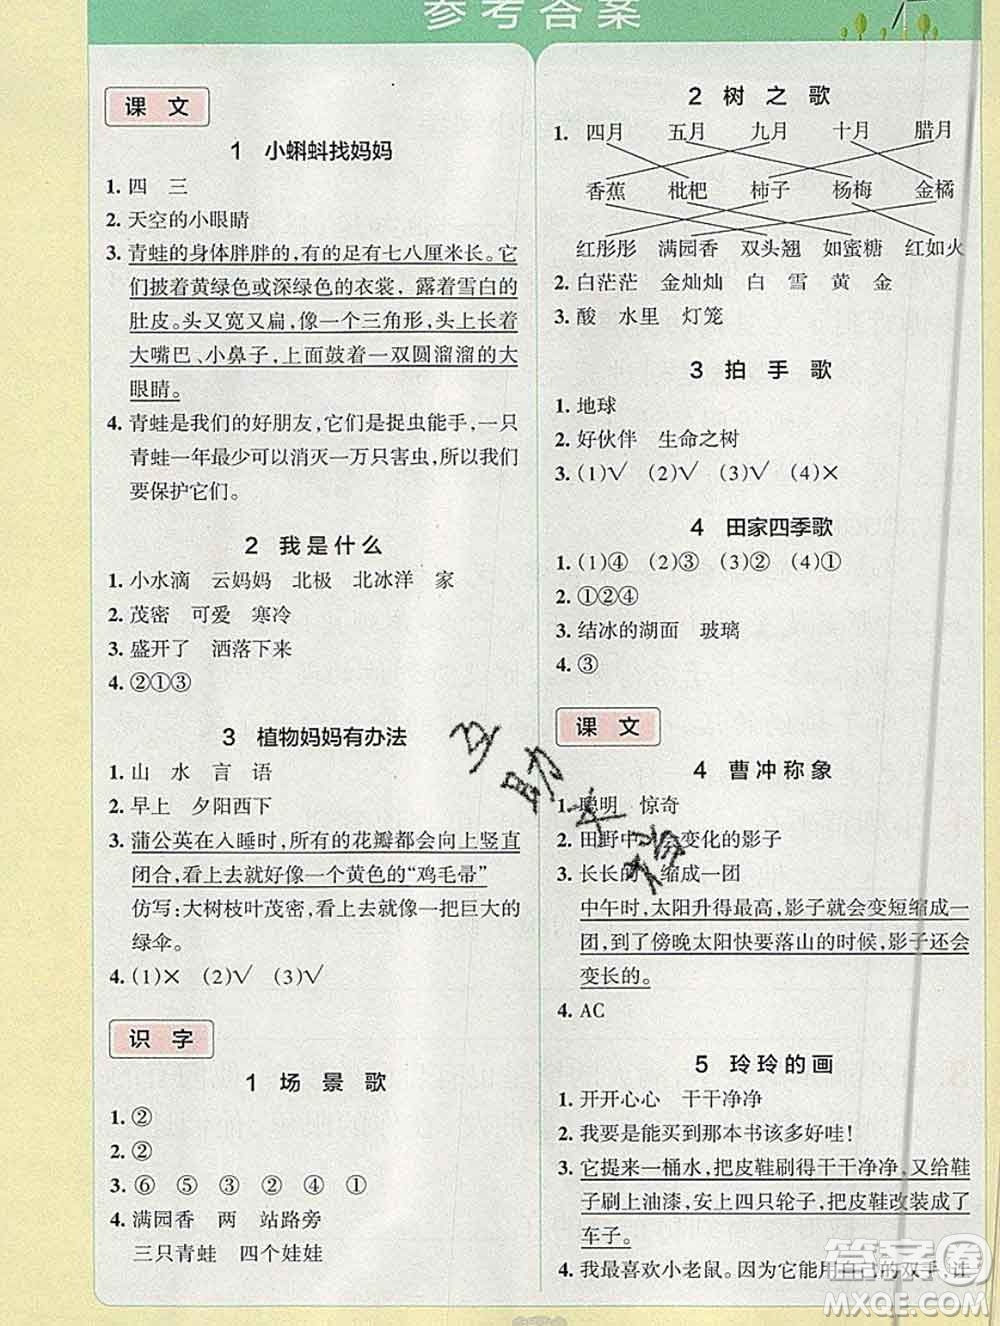 参考答案
课文
1 小蝌蚪找妈妈
1. 四 三
2. 天空的小眼睛
3. 青蛙的身体胖胖的，有的足有七八厘米长。它
们披着黄绿色或深绿色的衣裳，露着雪白的
肚皮。头又宽又扁，像一个三角形，头上长着
大嘴巴、小鼻子，上面鼓着一双圆溜溜的大
眼睛。
4. 青蛙是我们的好朋友，它们是捉虫能手，一只
青蛙一年最少可以消灭一万只害虫，所以我们
要保护它们。
2 我是什么
1. 小水滴 云妈妈 北极 北冰洋 家
2. 茂密 可爱 寒冷
3. 盛开了 洒落下来
4. ②①③
3 植物妈妈有办法
1. 山 水 言 语
2. 早上 夕阳西下
3. 蒲公英在入睡时，所有的花瓣都会向上竖直
闭合，看上去就好像一个黄色的“鸡毛帚”
仿写：大树枝叶茂密，看上去就像一把巨大的
绿伞。
4. (1)× (2)√ (3)√
识字
1 场景歌
1. ②
2. ②
3. ⑥ ⑤ ③ ② ④ ①
4. 满园香 两 站路旁
三只青蛙 四个娃娃
2 树之歌
1. 四月 五月 九月 十月 腊月
香蕉 枇杷 柿子 杨梅 金橘
红彤彤 满园香 双头翘 如蜜糖 红如火
2. 白茫茫 金灿灿 白 雪 黄 金
3. 酸 水里 灯笼
3 拍手歌
1. 地球
2. 好伙伴 生命之树
3. (1)√ (2)√ (3)√ (4)×
4 田家四季歌
1. (1)④ (2)③ (3)② (4)①
2. ①②④
3. 结冰的湖面 玻璃
4. ③
课文
4 曹冲称象
1. 聪明 惊奇
2. 田野中 会变化的影子
3. 长长的 缩成一团
中午时，太阳升得最高，影子就会变短缩成一
团，到了傍晚太阳快要落山的时候，影子还会
变长的。
4. AC
5 玲玲的画
1. 开开心心 干干净净
2. 我要是能买到那本书该多好哇！
3. 它提来一桶水，把皮鞋刷得干干净净，又给鞋
子刷上油漆，安上四只轮子，把皮鞋改装成了
车子。
4. 我最喜欢小老鼠。因为它能用自己的双手 让
互助文档
答案圈
MXQE.COM